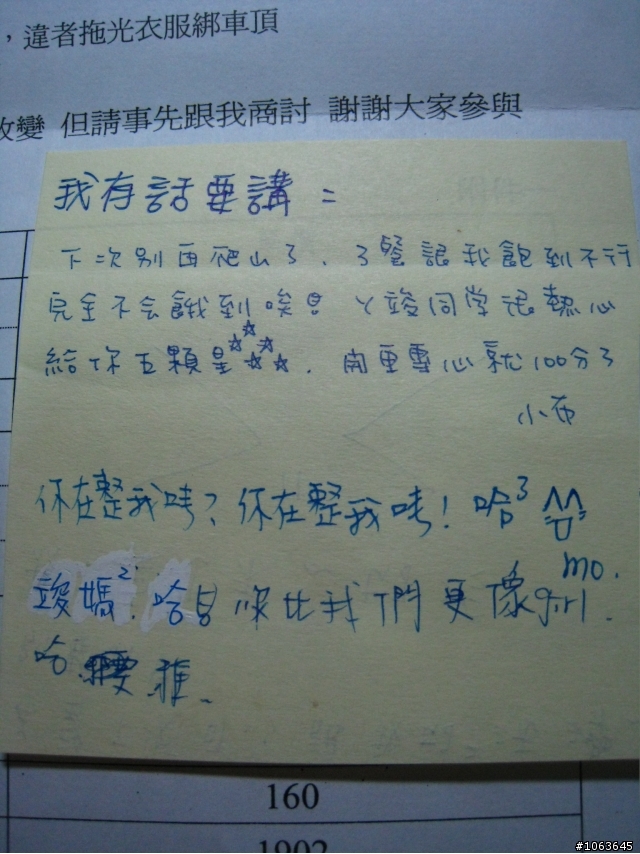 ，違者拖光衣服綁車頂
改變 但請事先跟我商討 謝謝大家參與
我有話要講：
下次別再爬山了、3餐讓我飽到不行
完全不会餓到唉! ㄚ竣同学很熱心
給你五顆星☆☆☆☆☆. 開車專心就100分了
小布
你在整我哇? 你在整我哇! 哈3
mo.
竣媽2. 你比我們更像girl.
哈 雅、
160
1902
#1063645